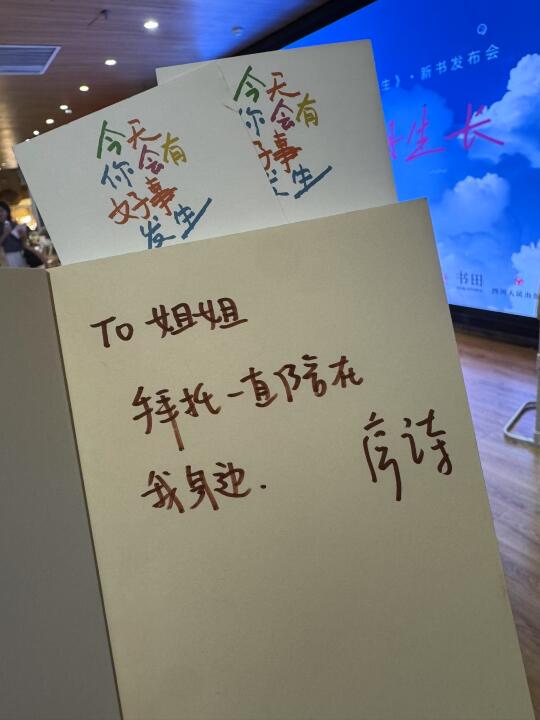 今天
你会有
好事
发生
今天
你会有
子事
生
生》·新书发布会
生长
书田
四川人民出
TO 姐姐
拜托一直陪在
我身边.